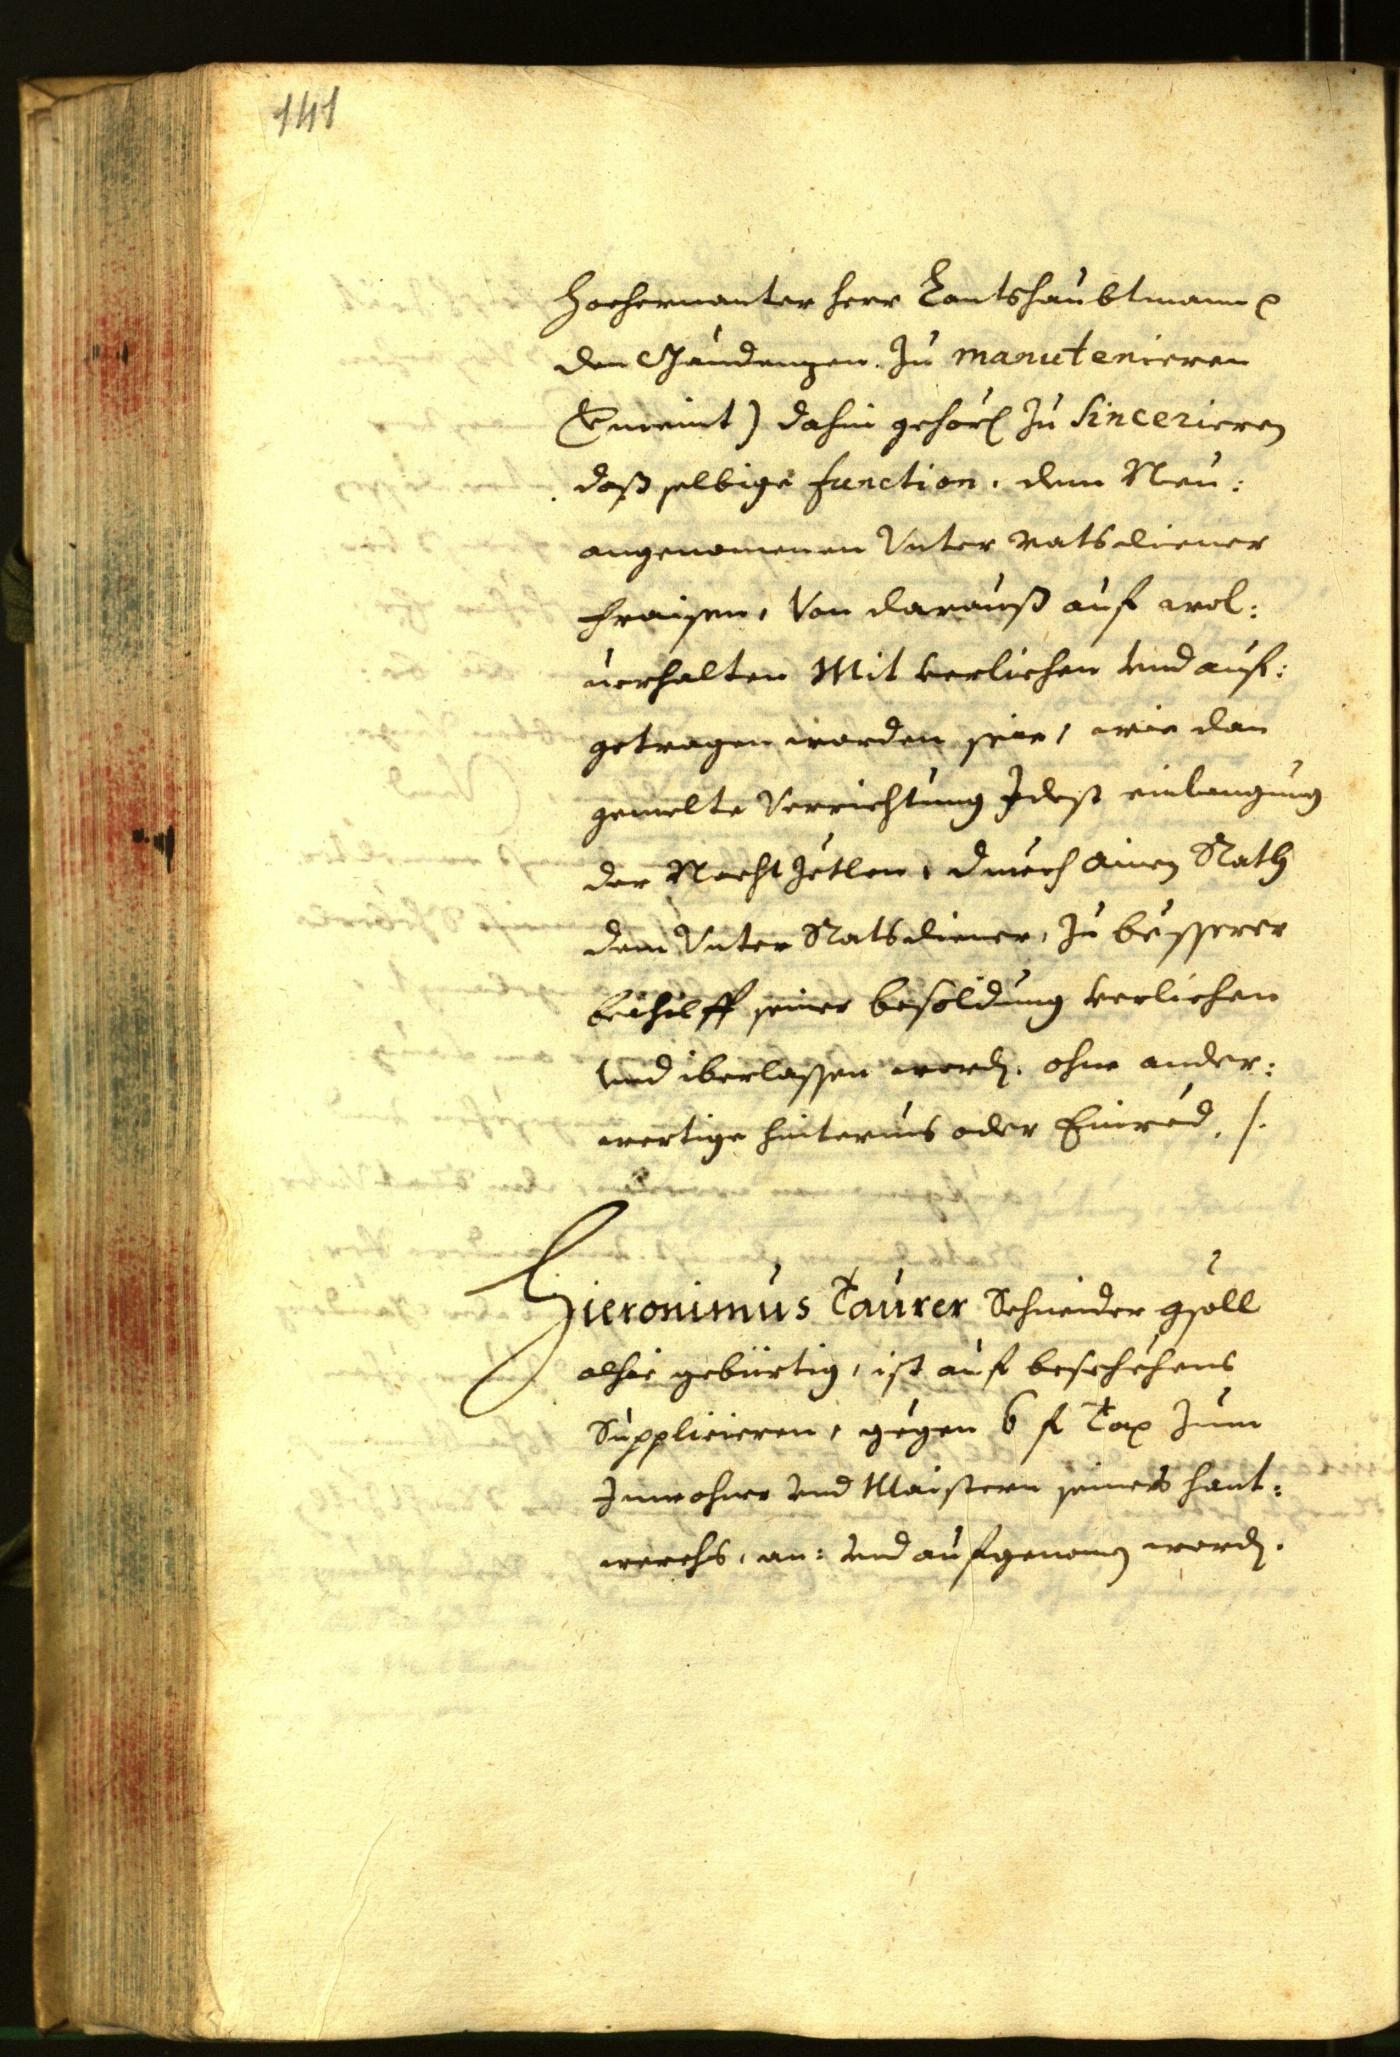 141
Hochernanter herr Lantshaubtmann
den Gaudenzen. Zu manutenieren
vermeint) dahin gehörl Zu Sincerieren
daß selbige function. dem Neu:
angenomenen Unter ratsdiener
fraisen, Von darauß auf wol:
uerhalten Mit verlichen vnd auf:
getragen worden seie, wie dan
gemelte Verrichtung Idest einlangung
der Nacht Zetlen, durch ainen Rath
dem Unter Ratsdiener, Zu besserer
beihilff seiner besoldung verlichen
vnd iberlassen word. ohne ander:
wertige hinternus oder Einred. /.
Hieronimus Taurer Schneider gsöll
alhie gebürtig, ist auf beschehens
Supplicieren, gegen 6 f Tax Zum
Inwohner vnd Maistern seines hant:
werchs, an: vnd aufgenomen word.